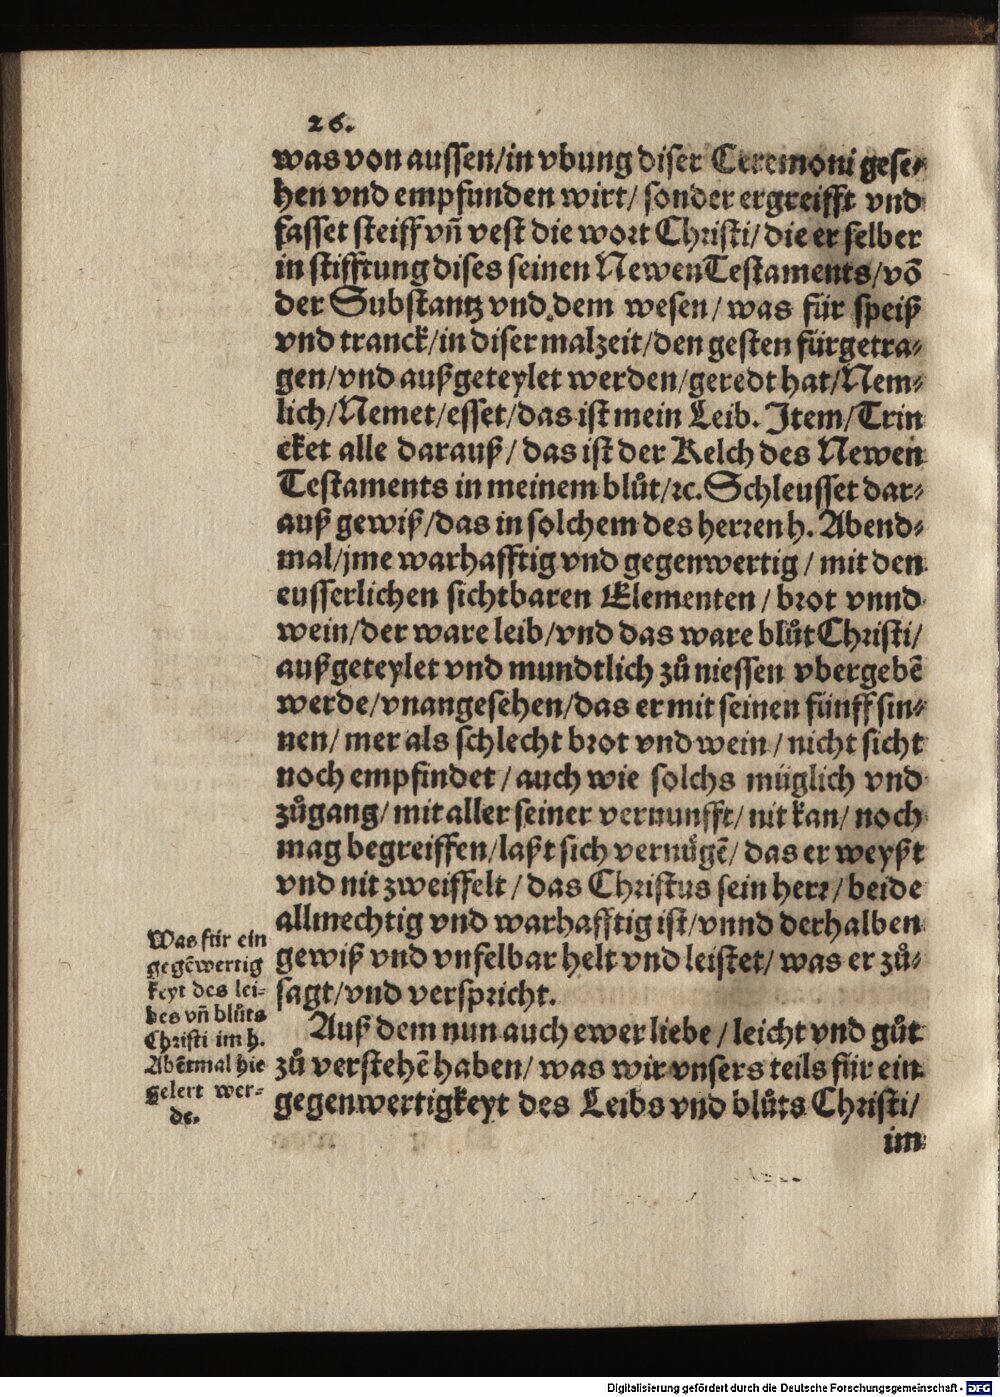 26.
was von aussen/in vbung diser Ceremoni gese⸗
hen vnd empfunden wirt/ sonder ergreifft vnd
fasset steiff vñ vest die wort Christi/ die er selber
in stifftung dises seinen Newen Testaments/ võ
der Substantz vnd dem wesen/ was für speiß
vnd tranck/in diser malzeit/den gesten fürgetra⸗
gen/vnd außgeteylet werden/geredt hat/Nem⸗
lich/Nemet/esset/das ist mein Leib. Item/Trin
cket alle darauß/ das ist der Kelch des Newen
Testaments in meinem blůt/ꝛc. Schleusset dar⸗
auß gewiß/das in solchem des herren h. Abend⸗
mal/jme warhafftig vnd gegenwertig/ mit den
eusserlichen sichtbaren Elementen/ brot vnnd
wein/der ware leib/vnd das ware blůt Christi/
außgeteylet vnd mundtlich zů niessen vbergebẽ
werde/vnangesehen/das er mit seinen fünff sin⸗
nen/ mer als schlecht brot vnd wein/ nicht sicht
noch empfindet/ auch wie solchs müglich vnd
zůgang/ mit aller seiner vernunfft/ nit kan/ noch
mag begreiffen/laßt sich vernůgẽ/ das er weyßt
vnd nit zweiffelt/ das Christus sein herr/ beide
allmechtig vnd warhafftig ist/vnnd derhalben
gewiß vnd vnfelbar helt vnd leistet/ was er zů⸗
sagt/vnd verspricht.
Was für ein
gegẽwertig
keyt des lei-
bes vñ blůts
Christi im h.
Abẽtmal hie
gelert wer-
de.
Auß dem nun auch ewer liebe/ leicht vnd gůt
zů verstehẽ haben/ was wir vnsers teils für ein
gegenwertigkeyt des Leibs vnd blůts Christi/
im
Digitalisierung gefördert durch die Deutsche Forschungsgemeinschaft - DFG